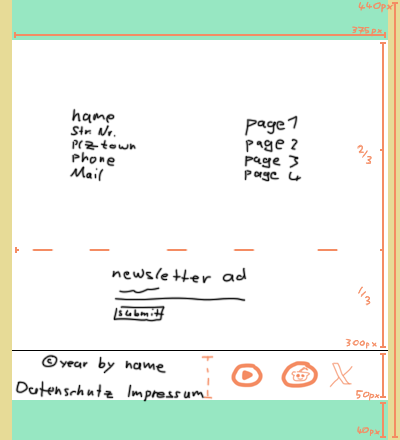 440px
375px
name
Str. Nr.
PLZ town
phone
Mail
page 1
page 2
page 3
page 4
2/3
newsletter ad
submit
1/3
300px
©year by name
Datenschutz Impressum
50px
40px